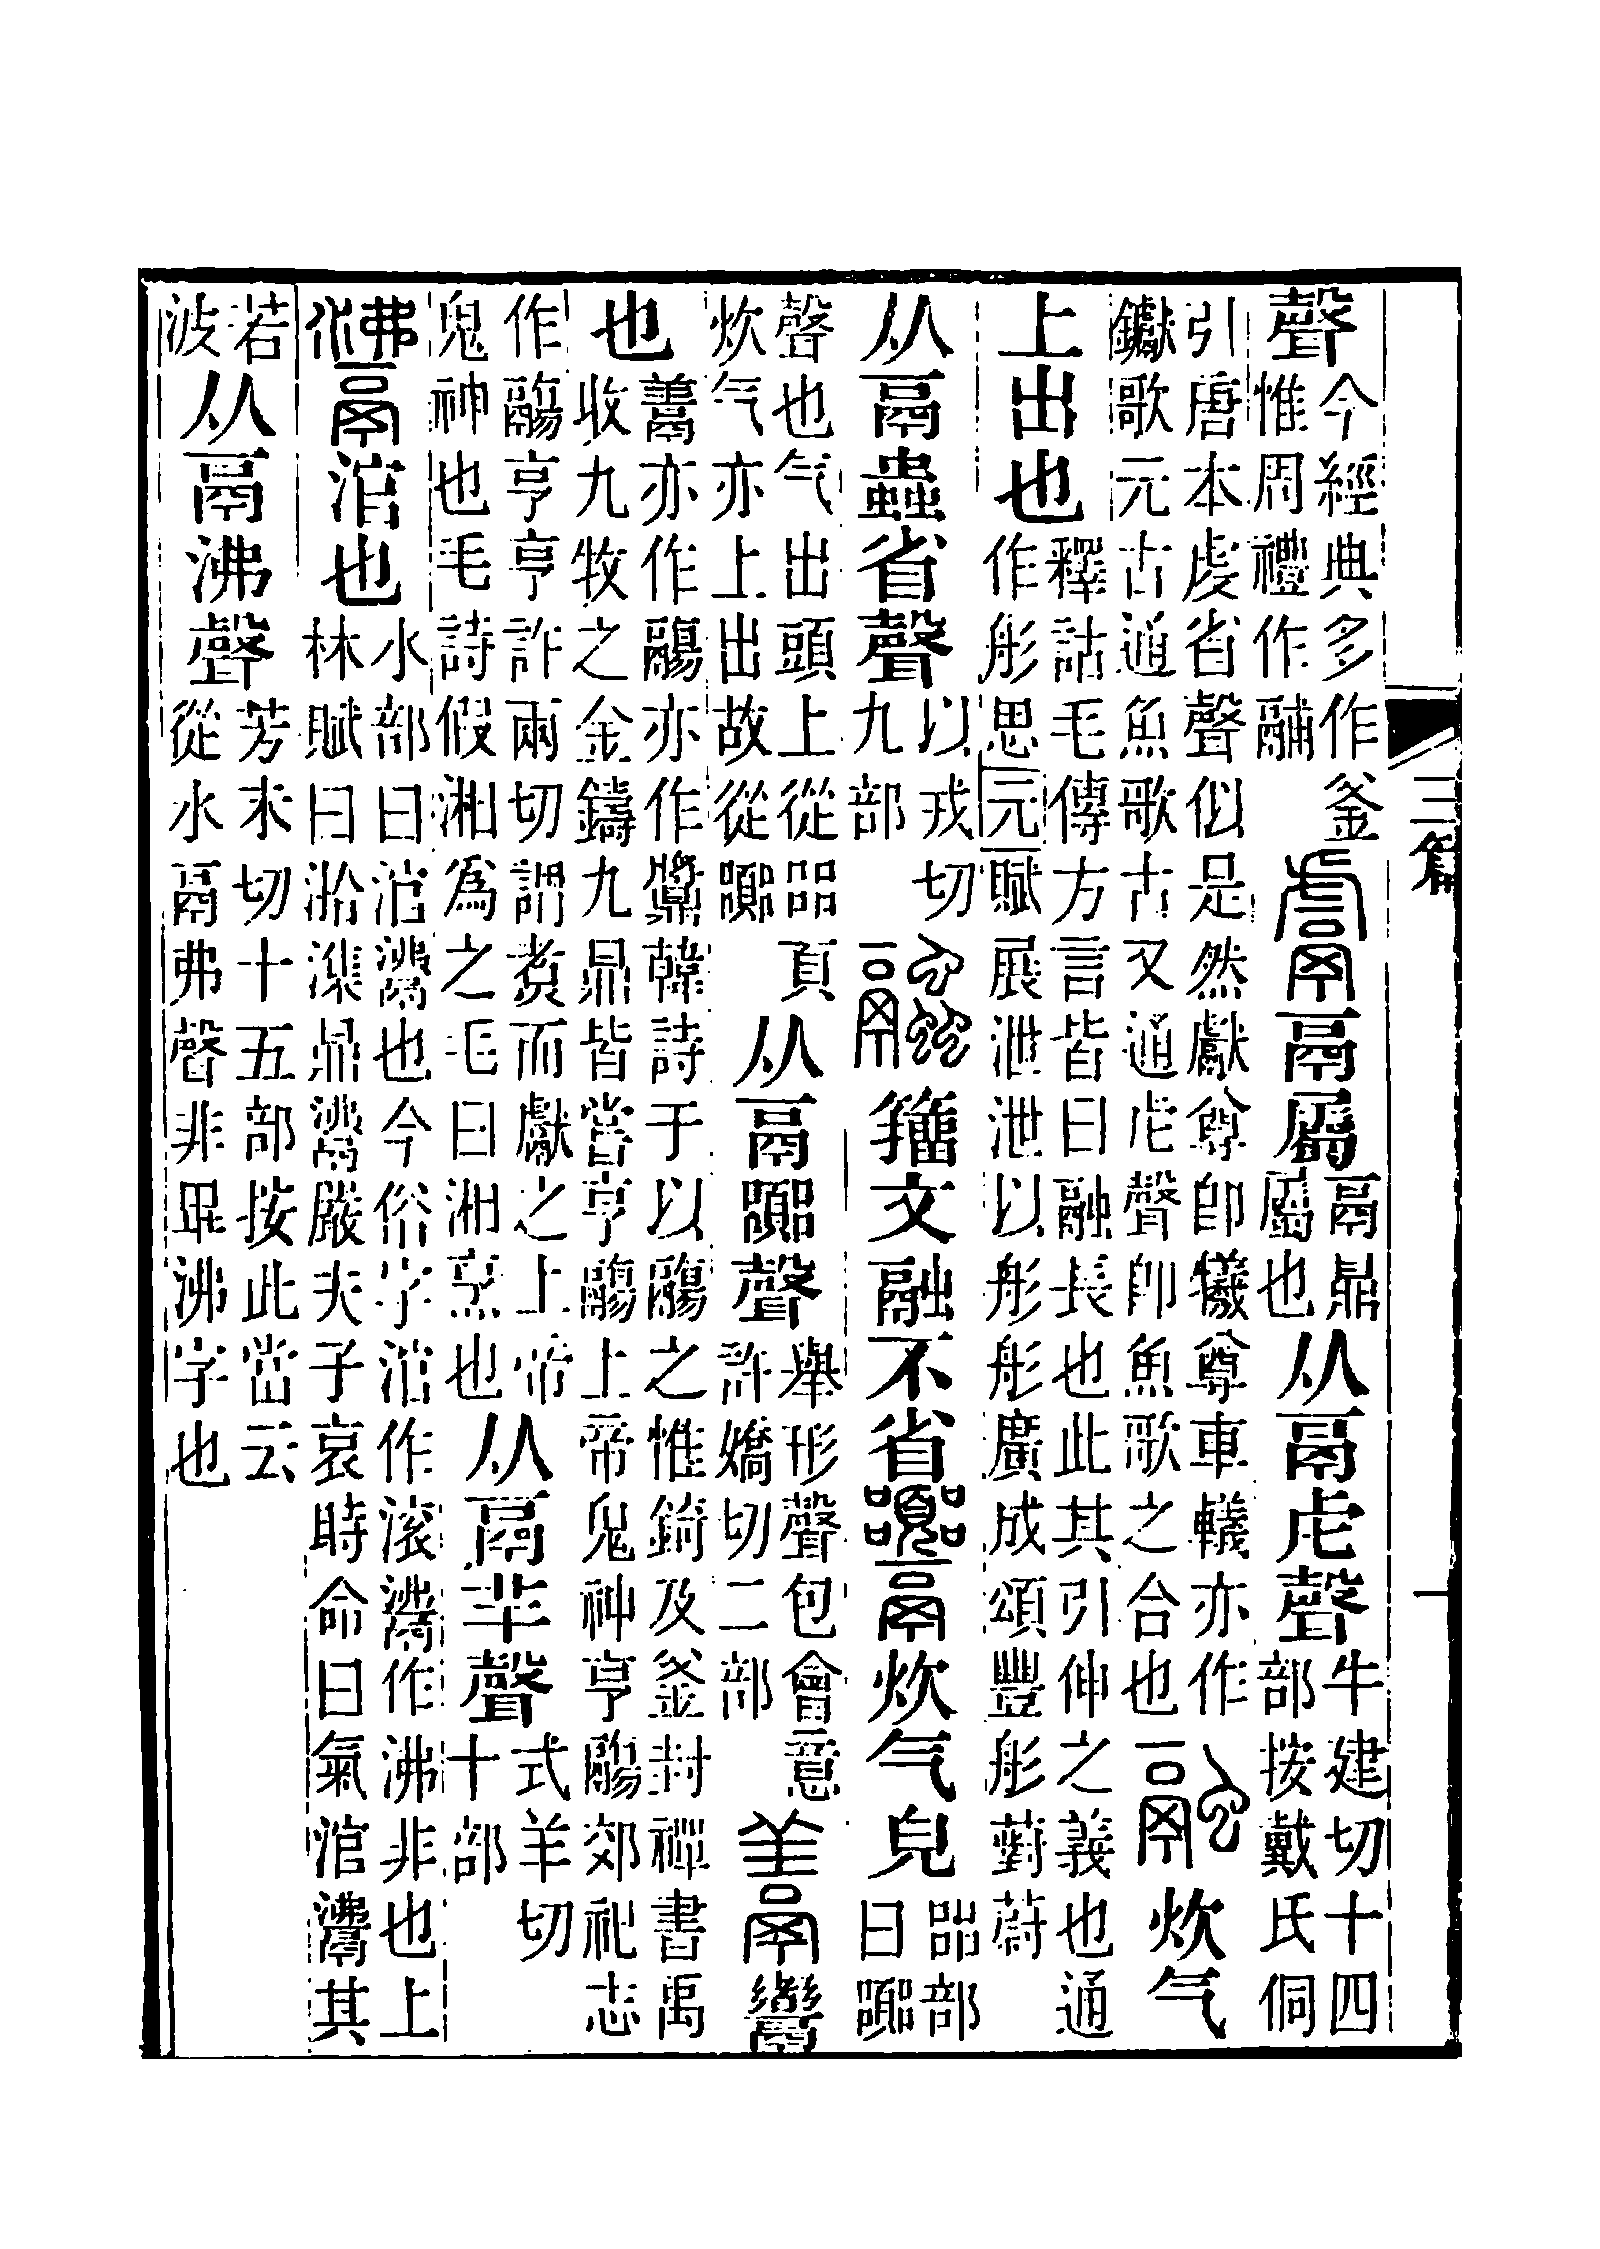 聲今經典多作釜惟周禮作鬴鬳鬲屬鬲鼎屬也从鬲虍聲牛建切十四部按戴氏侗
引唐本虔省聲似是然獻尊卽犧尊車轙亦作钀歌元古通魚歌古又通虍聲卽魚歌之合也融炊气
上出也釋詁毛傳方言皆曰融長也此其引伸之義也通作彤思元賦展泄泄以彤彤廣成頌豐彤薱蔚
从鬲蟲省聲以戎切九部籒文融不省炊气皃㗊部曰嚻
聲也气出頭上從㗊頁炊气亦上出故從嚻从鬲嚻聲舉形聲包會意許嬌切二部䰞𩱰
也䰞亦作鬺亦作䵼韓詩于以鬺之惟錡及釜封禪書禹收九牧之金鑄九鼎皆嘗亨鬺上帝鬼神亨鬺郊祀志
作鬺亨亨許兩切謂煑而獻之上帝鬼神也毛詩假湘爲之毛曰湘烹也从鬲羊聲式羊切十部
𩰾涫也水部曰涫𩰾也今俗字涫作滚𩰾作沸非也上林賦曰湁潗鼎𩰾嚴夫子哀時命曰氣涫𩰾其
若波从鬲沸聲芳未切十五部按此當云從水鬲弗聲非毘沸字也
三篇